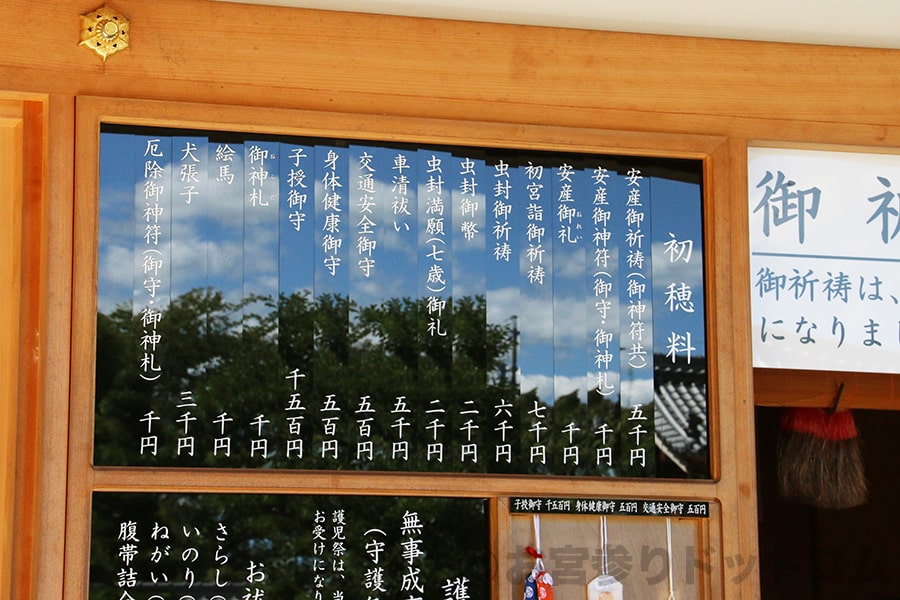 初穂料
安産御祈祷(御神符共) 五千円
安産御神符(御守・御神札) 千円
安産御礼 千円
おれい
初宮詣御祈祷 七千円
虫封御祈祷 六千円
虫封御幣 二千円
虫封満願(七歳)御礼 二千円
車清祓い 五千円
交通安全御守 五百円
身体健康御守 五百円
子授御守 千五百円
御神札 千円
おふだ
絵馬 千円
犬張子 三千円
厄除御神符(御守・御神札) 千円
御祈
御祈祷は、
になりまし
子授御守 千五百円 身体健康御守 五百円 交通安全御守 五百円
護
無事成
(守護
護児祭は、当
お受けになり
お祓
さらし(
いのり(
ねがい(
腹帯詰合
お宮参りドットコム